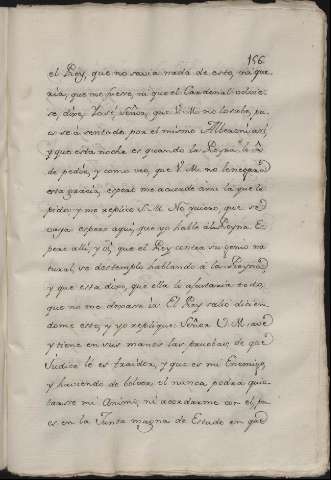 156
el Rey, que no savia nada de esto, ni que
ria, que me fuese, ni que el Cardenal volvie-
se, dixe, José, Señor, que V. M. no lo sabe, pu-
es se á sentado por el mismo Alberoni así,
y que esta noche es quando la Reyna lo á
de pedir, y como veo, que V. M. no le negará
esta gracia, espero me acuerde á mi la que le
pido: y me replicó S. M. No quiero, que se
vaya espere aqui, que yo hable á la Reyna. Es-
pere alli, y oí, que el Rey contra su genio na-
tural, se destempló hablando á la Reyna
y que esta dixo, que ella lo ajustaria todo,
que no me dexase ir. El Rey salió dicien-
dome esto, y yo replique: Señor V. M. ave
y tiene en sus manos las pruebas, de que
Judice le es traidor, y que es mi Enemigo,
y haviendo de bolver el nunca podrá quie-
tarse mi Animo, ni acordarme con el, pu-
es en la Junta magna de Estado en que